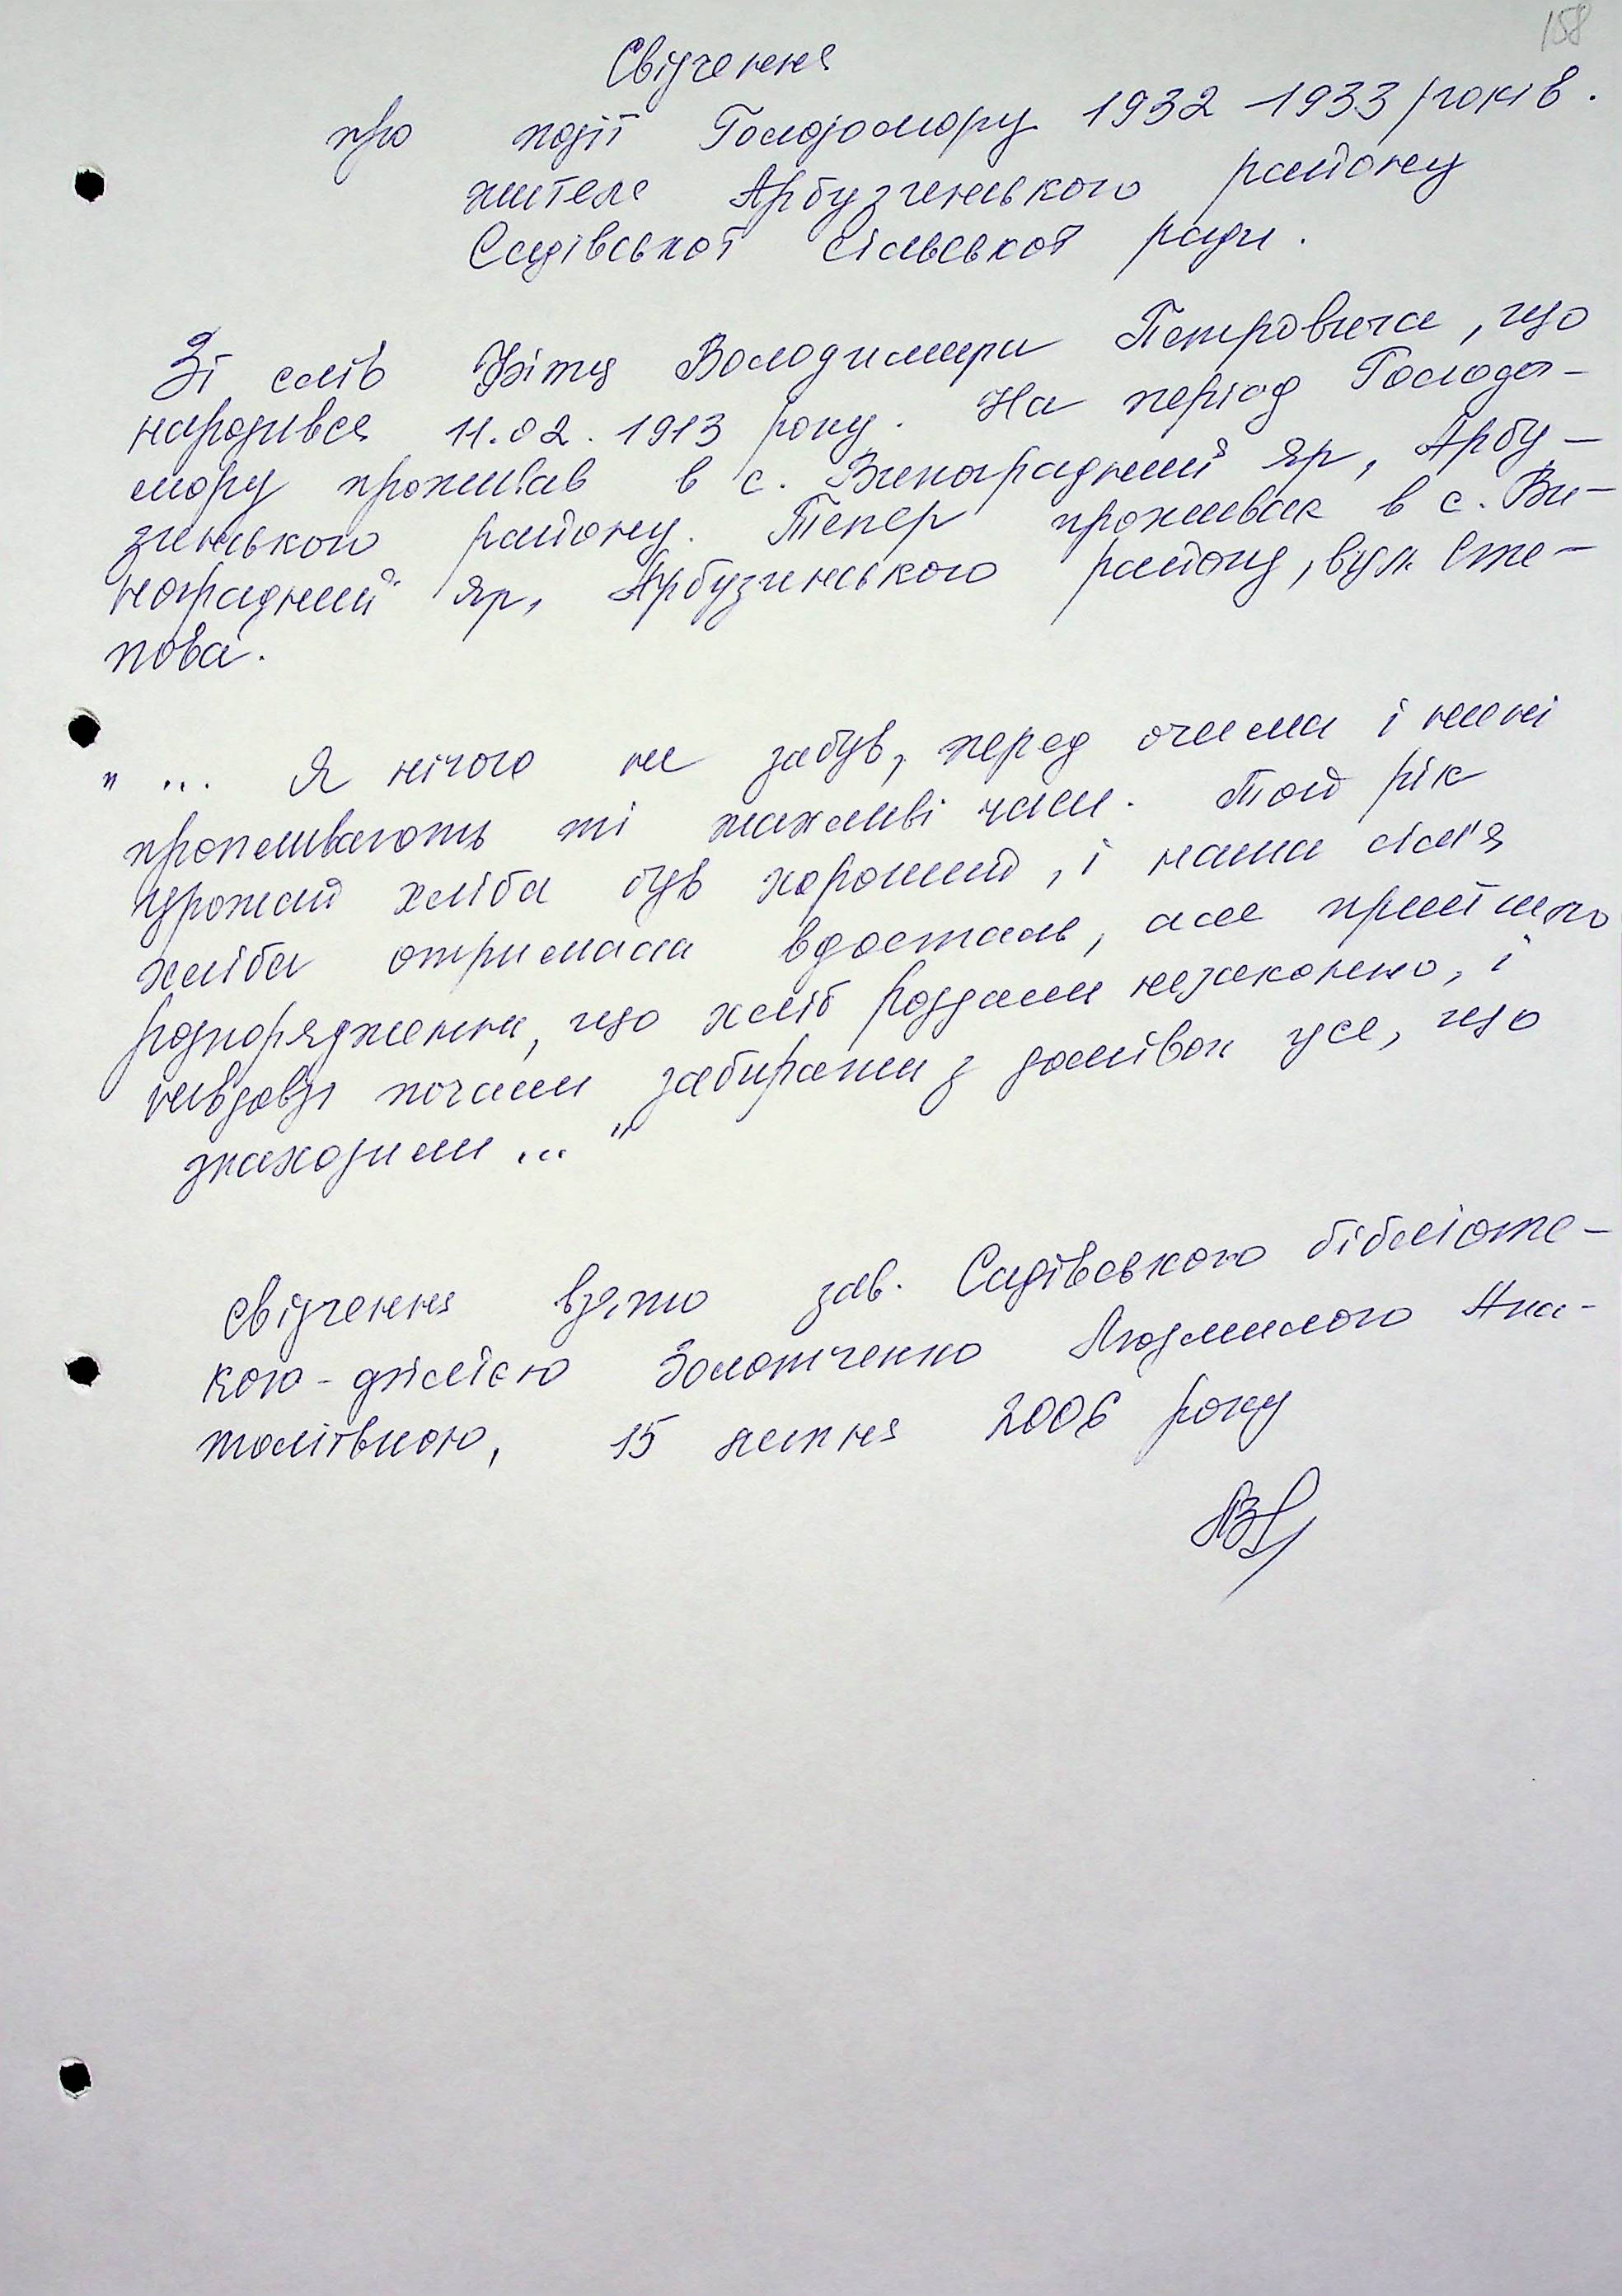 158
Свідчення
про події Голодомору 1932-1933 років.
жителя Арбузинського району
Садівської сільської ради.
Зі слів Володимира Петровича, що
народився 11.02.1913 року. На період Голодо-
мору проживав в с. Виноградний Яр, Арбу-
зинського району. Тепер проживає в с. Ви-
ноградний Яр, Арбузинського району, вул. Сте-
пова.
"... Я нічого не забув, перед очима і нині
пропливають ті жахливі часи. Той рік
урожай хліба був хороший, і наша сім'я
хліба отримала вдосталь, але прийшло
розпорядження, що хліб роздали незаконно, і
невдовзі почали забирати з домівок усе, що
знаходили..."
Свідчення взято зав. Садівською бібліоте-
кою-філією Золотченко Людмилою Ана-
толіївною, 15 липня 2006 року